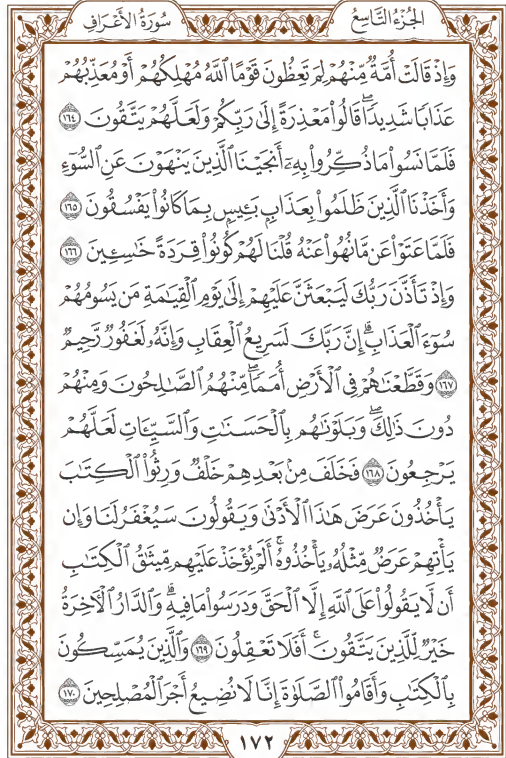 الجُزْءُ التَّاسِعُ
سُورَةُ الأَعْرَافِ
وَإِذْ قَالَتْ أُمَّةٌ مِّنْهُمْ لِمَ تَعِظُونَ قَوْمًا ٱللَّهُ مُهْلِكُهُمْ أَوْ مُعَذِّبُهُمْ
عَذَابًا شَدِيدًا ۖ قَالُوا۟ مَعْذِرَةً إِلَىٰ رَبِّكُمْ وَلَعَلَّهُمْ يَتَّقُونَ ١٦٤
فَلَمَّا نَسُوا۟ مَا ذُكِّرُوا۟ بِهِۦٓ أَنجَيْنَا ٱلَّذِينَ يَنْهَوْنَ عَنِ ٱلسُّوٓءِ
وَأَخَذْنَا ٱلَّذِينَ ظَلَمُوا۟ بِعَذَابٍۭ بَـِٔيسٍۭ بِمَا كَانُوا۟ يَفْسُقُونَ ١٦٥
فَلَمَّا عَتَوْا۟ عَن مَّا نُهُوا۟ عَنْهُ قُلْنَا لَهُمْ كُونُوا۟ قِرَدَةً خَـٰسِـِٔينَ ١٦٦
وَإِذْ تَأَذَّنَ رَبُّكَ لَيَبْعَثَنَّ عَلَيْهِمْ إِلَىٰ يَوْمِ ٱلْقِيَـٰمَةِ مَن يَسُومُهُمْ
سُوٓءَ ٱلْعَذَابِ ۗ إِنَّ رَبَّكَ لَسَرِيعُ ٱلْعِقَابِ ۖ وَإِنَّهُۥ لَغَفُورٌ رَّحِيمٌ
١٦٧ وَقَطَّعْنَـٰهُمْ فِى ٱلْأَرْضِ أُمَمًا ۖ مِّنْهُمُ ٱلصَّـٰلِحُونَ وَمِنْهُمْ
دُونَ ذَٰلِكَ ۖ وَبَلَوْنَـٰهُم بِٱلْحَسَنَـٰتِ وَٱلسَّيِّـَٔاتِ لَعَلَّهُمْ
يَرْجِعُونَ ١٦٨ فَخَلَفَ مِنۢ بَعْدِهِمْ خَلْفٌ وَرِثُوا۟ ٱلْكِتَـٰبَ
يَأْخُذُونَ عَرَضَ هَـٰذَا ٱلْأَدْنَىٰ وَيَقُولُونَ سَيُغْفَرُ لَنَا وَإِن
يَأْتِهِمْ عَرَضٌ مِّثْلُهُۥ يَأْخُذُوهُ ۚ أَلَمْ يُؤْخَذْ عَلَيْهِم مِّيثَـٰقُ ٱلْكِتَـٰبِ
أَن لَّا يَقُولُوا۟ عَلَى ٱللَّهِ إِلَّا ٱلْحَقَّ وَدَرَسُوا۟ مَا فِيهِ ۗ وَٱلدَّارُ ٱلْـَٔاخِرَةُ
خَيْرٌ لِّلَّذِينَ يَتَّقُونَ ۗ أَفَلَا تَعْقِلُونَ ١٦٩ وَٱلَّذِينَ يُمَسِّكُونَ
بِٱلْكِتَـٰبِ وَأَقَامُوا۟ ٱلصَّلَوٰةَ إِنَّا لَا نُضِيعُ أَجْرَ ٱلْمُصْلِحِينَ ١٧٠
١٧٢